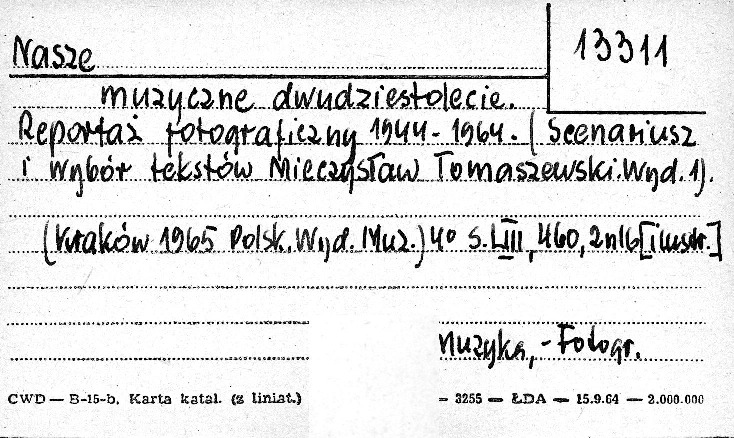 Nasze
13311
muzyczne dwudziestolecie.
Reportaż fotograficzny 1944-1964. (Scenariusz
i wybór tekstów Mieczysław Tomaszewski. Wyd. 1).
(Kraków 1965 Polsk. Wyd. Muz.) 4° S. LIII, 460, 2nlb [ilustr.]
Muzyka, - Fotogr.
CWD — B-15-b. Karta katal. (z liniat.)
— 3255 — ŁDA — 15.9.64 — 2.000.000